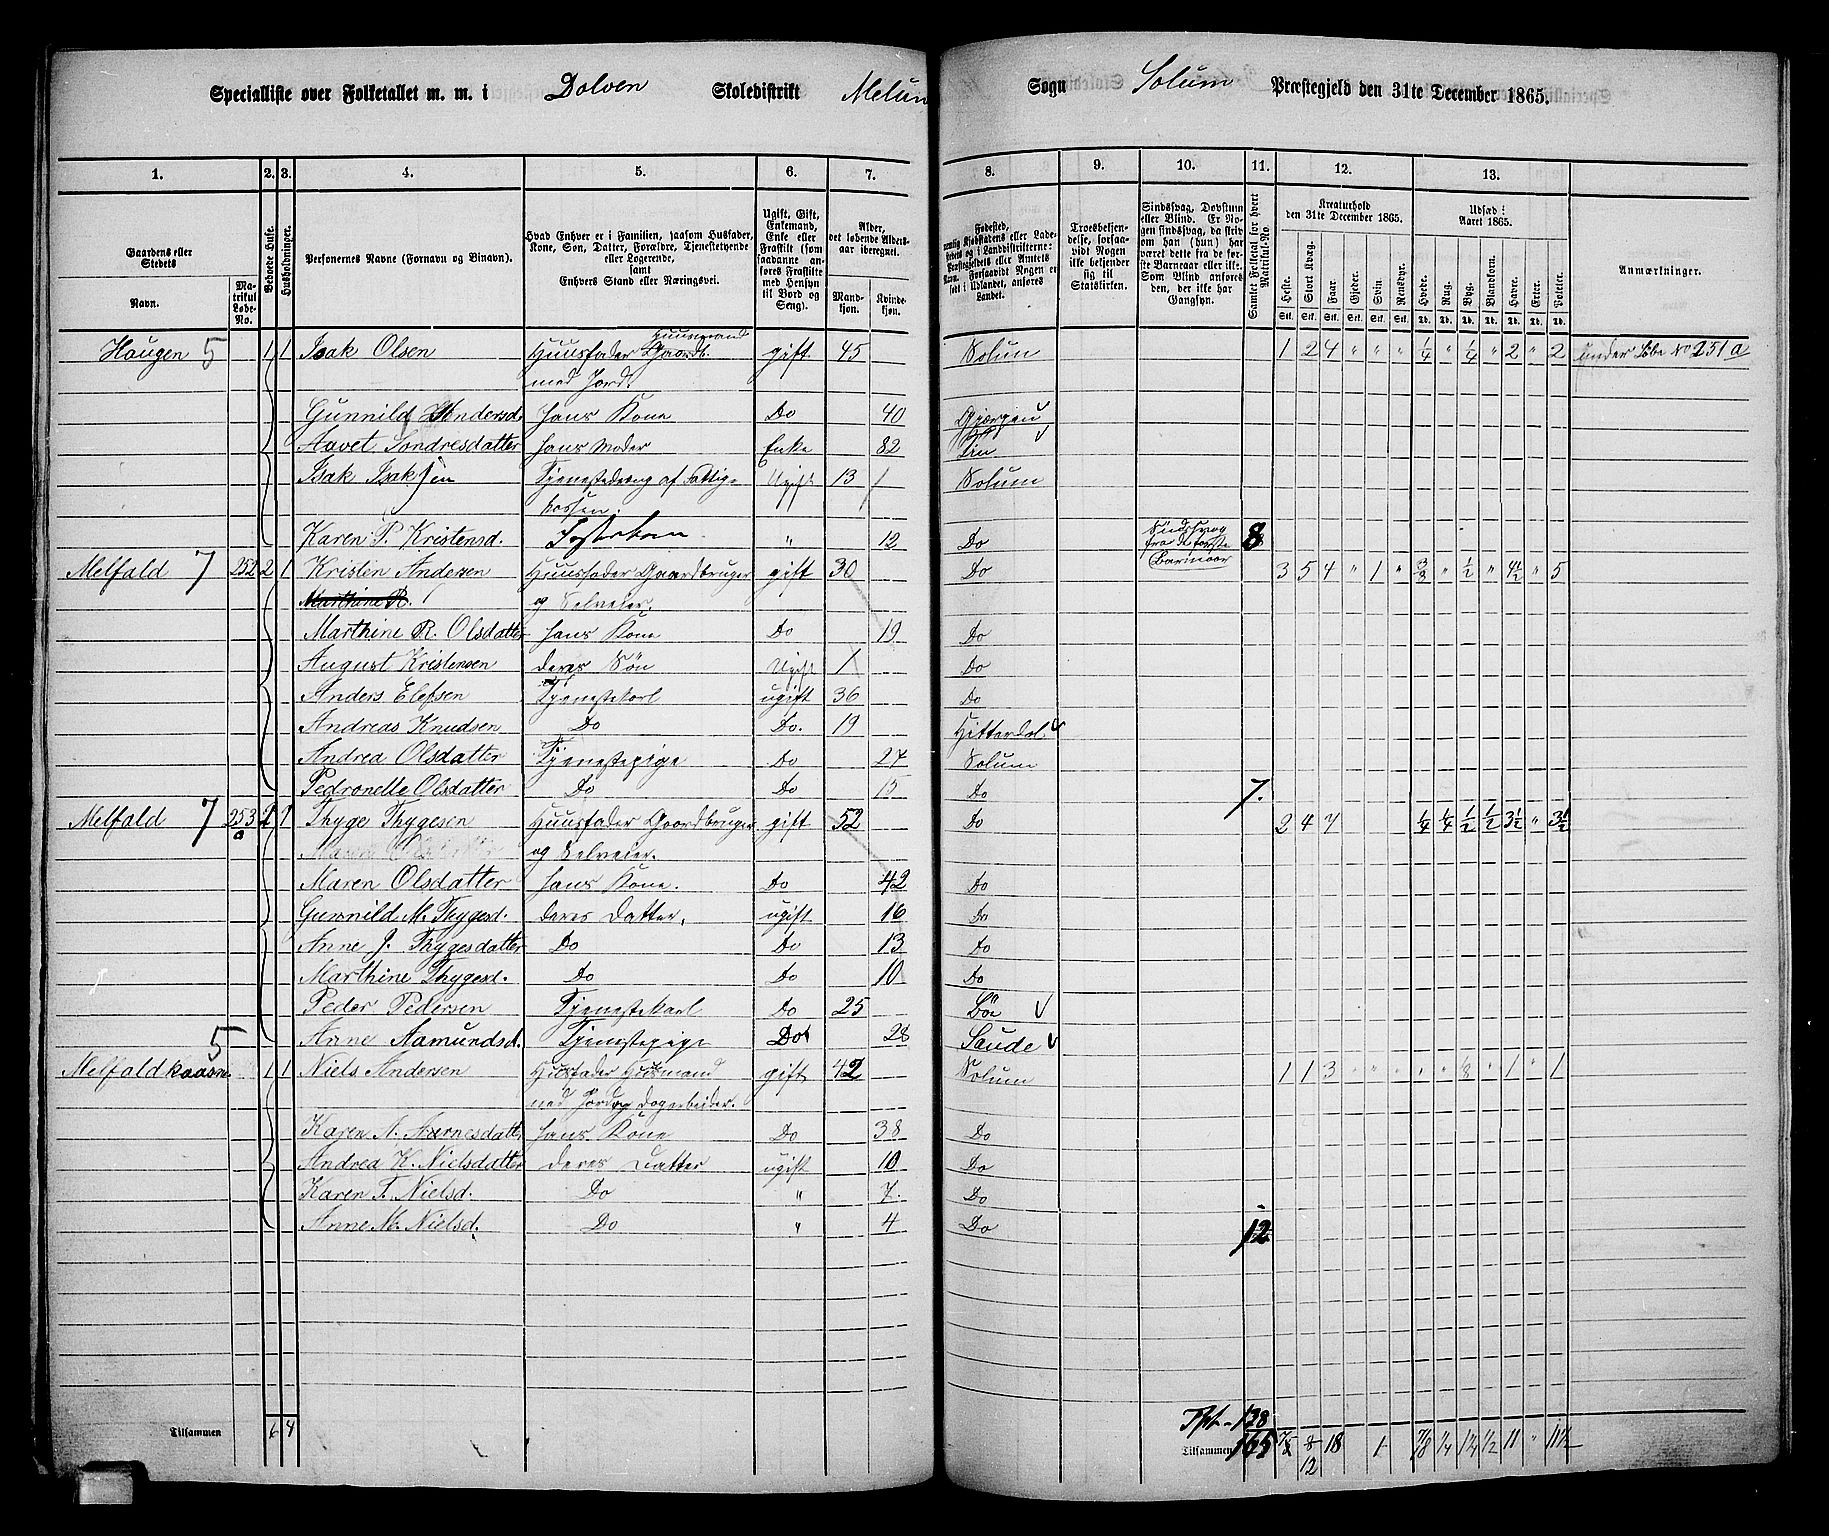 Specialliste over Folketallet m. m. i Dolven Skoledistrikt Melum Sogn Solum Præstegjeld den 31te December 1865.
1. 2. 3. 4. 5. 6. 7. 8. 9. 10. 11. 12. 13.
Gaardens eller Stedets Navn. Matrikul Løbe-No. Beboede Huse. Husholdninger. Personernes Navne (Fornavn og Binavn). Hvad Enhver er i Familien, saasom Husfader, Kone, Søn, Datter, Forældre, Tjenestetyende eller Logerende, samt Enhvers Stand eller Næringsvei. Ugift, Gift, Enkemand, Enke eller Fraskilt (som saadanne anføres Fraskilte med Hensyn til Bord og Seng). Alder, det løbende Aldersaar iberegnet. Mandkjøn. Kvindekjøn.
Troesbekjendelse, forsaavidt Nogen ikke bekjender sig til Statskirken. Sindssvag, Døvstum eller Blind. Er Nogen sindssvag, da skrives om han (hun) har været dette fra de første Barneaar eller ikke. Som Blind anføres den, der ikke har Gangsyn. Samlet Folketal for hvert Matrikul-No. Kreaturhold den 31te December 1865. Udsæd i Aaret 1865. Anmærkninger.
Heste. Stort Kvæg. Faar. Gjeder. Svin. Rensdyr. Hvede. Rug. Byg. Blandkorn. Havre. Erter. Poteter.
Haugen 5 1 1 Isak Olsen Huusfader Gaardb. Huusmand gift 45 Solum 1 2 4 " " " 1/4 " 1/4 " 2 " 2 under Løbe No 251a
med Jord.
Gunnild Andersd. hans Kone Do 40 Gjerpen
Aavet Sondresdatter hans Moder Enke 82
Isak Isaksen Tjenestedreng af Fattig- Ugift 13 Solum
kassen.
Karen P. Kristensd. Fosterbarn " 12 Do Sindssvag fra de første Barneaar 8
Melfald 7 252 2 1 Kristen Andersen Huusfader Gaardbruger gift 30 Do 3 5 4 " 1 " 3/8 " 1/2 " 4 1/2 " 5
Marthine R. og Selveier.
Marthine R. Olsdatter hans Kone Do 19 Do
August Kristensen deres Søn Ugift 1 Do
Anders Elefsen Tjenestekarl ugift 36 Do
Andreas Knudsen Do Do. 19 Hitterdal
Andrea Olsdatter Tjenestepige Do 27 Solum
Pedronelle Olsdatter Do Do 15 Do 7.
Melfald 7 253 2 1 Thyge Thygesen Huusfader Gaardbruger gift 52 Do 2 4 7 1/4 1/4 1/2 1/2 3 1/2 " 3 1/2
og Selveier.
Maren Olsdatter hans Kone. Do 42 Do
Gunnild M. Thygesd. deres Datter, ugift 16 Do
Anne J. Thygesdatter Do Do 13 Do
Marthine Thygesd. Do Do 10 Do
Peder Pedersen Tjenestekarl Do 25 Bøe
5 Anne Aamundsd. Tjenestepige Do 28 Saude
Melfaldkaasene 1 1 Niels Andersen Husfader Husmand gift 42 Solum 1 1 3 " " " " " 1/8 " 1 " 1
med Jord og Dagarbeider.
Karen A. Aarnesdatter hans Kone Do 38 Do
Andrea K. Nielsdatter deres Datter ugift 10 Do
Karen T. Nielsd. Do " 7. Do
Anne M. Nielsd. Do " 4 Do 12
Tpt - 128
Tilsammen 6 4 Tilsammen 165 12 18 1 7/8 1/4 1/2 11 " 11 1/2